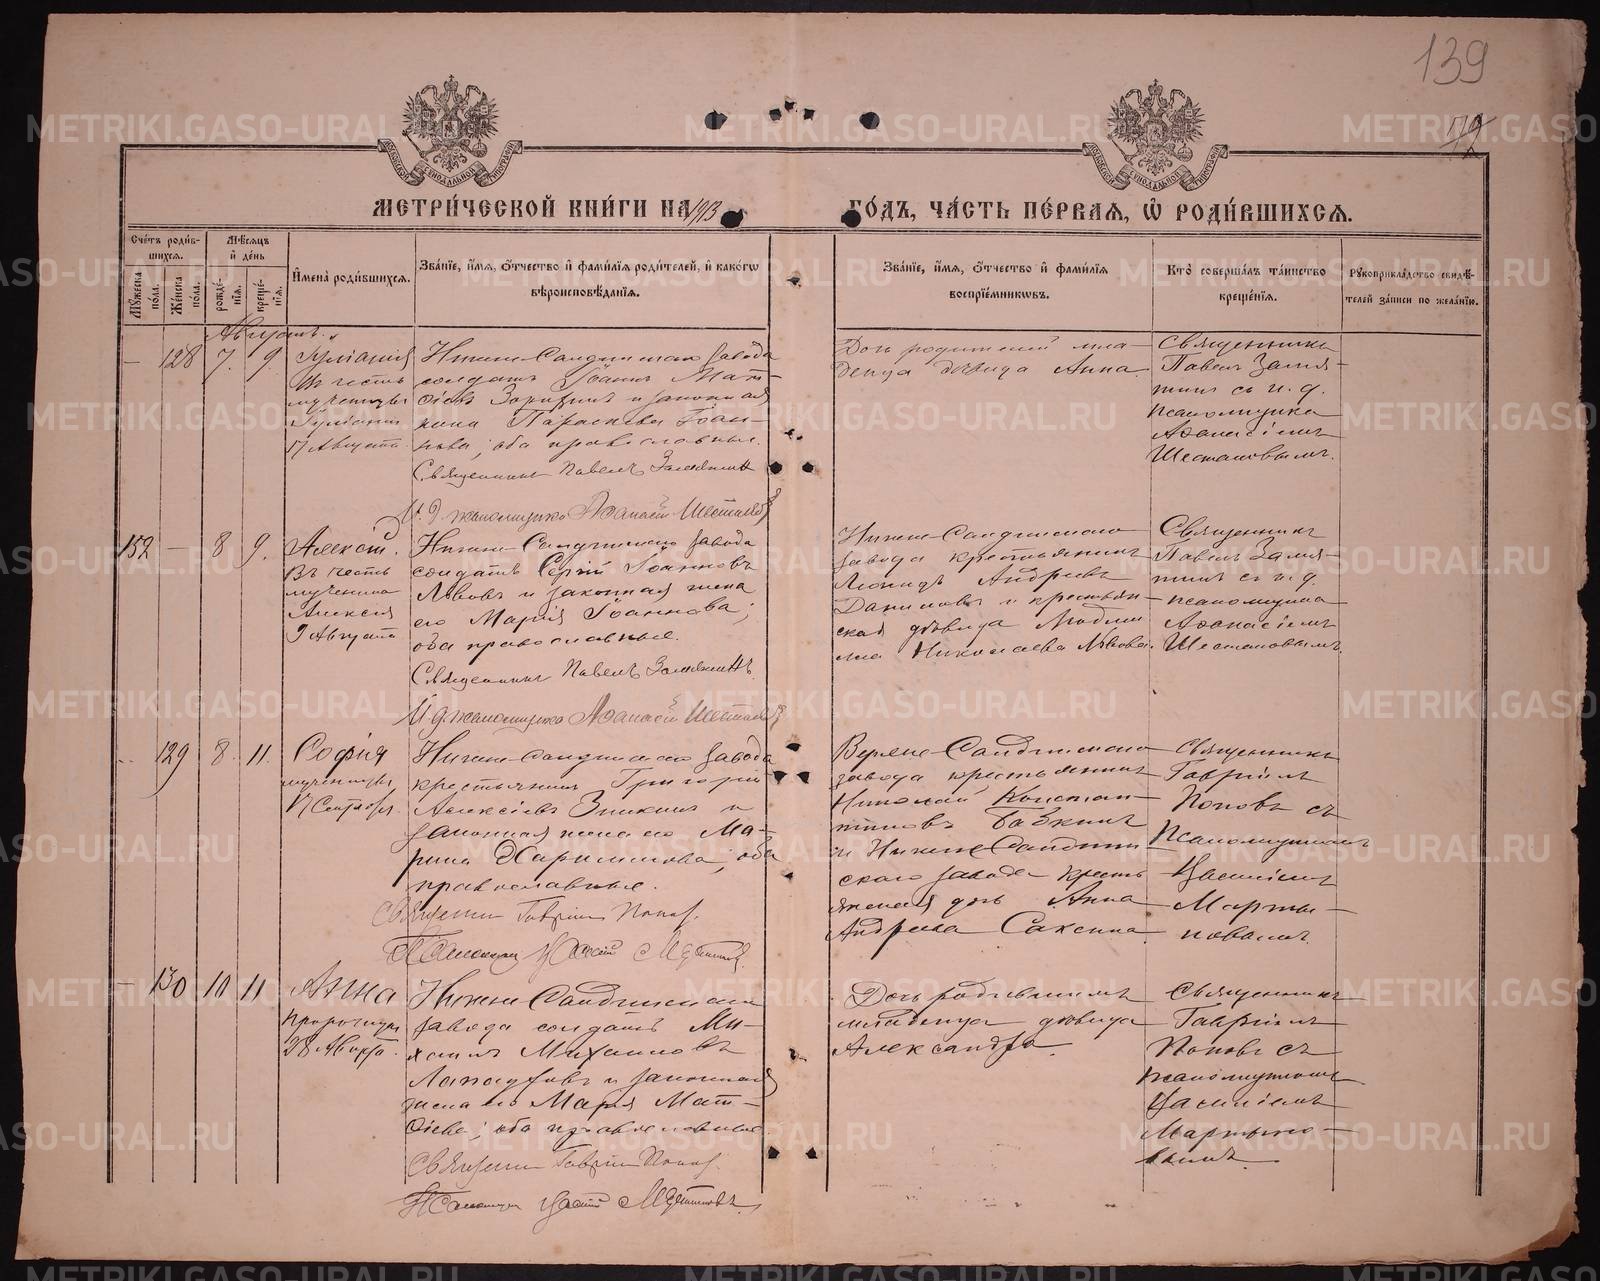 139
МЕТРИ́ЧЕСКОЙ КНИ́ГИ НА 1913 ГО́ДЪ, ЧА́СТЬ ПЕ́РВАЯ, Ѡ҆ РОДИ́ВШИХСЯ.
Сче́тъ роди́в-
шихся.
Мꙋжеска по́ла.
Же́нска по́ла.
Мѣ́сяцъ
и҆ де́нь
рожде́-
нїя.
креще́-
нїя.
И҆мена̀ роди́вшихся.
Зва́нїе, и҆́мя, ѻ҆́тчество и҆ фами́лїя роди́телей, и҆ како́гѡ
вѣроисповѣ́данїя.
Зва́нїе, и҆́мя, ѻ҆́тчество и҆ фами́лїя
воспрїе́мникѡвъ.
Кто̀ соверша́лъ та́инство
креще́нїя.
Рꙋкоприкла́дство свидѣ́-
телей за́писи по жела́нїю.
Августъ.
— 128 7. 9.
Іуліанія
Въ честь
мученицы
Іуліаніи
17 Августа
Нижне-Салдинскаго завода
солдатъ Іоаннъ Мат-
ѳіевъ и законная
жена Параскева Іоан-
нова; оба православные.
Священникъ Павелъ Замятинъ
И. д. псаломщика Аѳанасій Шестаковъ
Дочь родителей мла-
денца дѣвица Анна
Священникъ
Павелъ Замя-
тинъ съ и. д.
псаломщика
Аѳанасіемъ
Шестаковымъ.
152 — 8 9.
Алексій.
Въ честь
мученика
Алексія
9 Августа
Нижне-Салдинскаго завода
солдатъ Сергій Іоанновъ
Львовъ и законная жена
его Марія Іоаннова;
оба православные.
Священникъ Павелъ Замятинъ.
И д псаломщика Аѳанасій Шестаковъ
Нижне-Салдинскаго
завода крестьянинъ
Леонидъ Андреевъ
Даниловъ и крестьян-
ская дѣвица Людми
ла Николаева Львова.
Священникъ
Павелъ Замя-
тинъ съ и. д.
псаломщика
Аѳанасіемъ
Шестаковымъ.
129 8. 11.
Софія
мученицы,
17 Сентября.
Нижне-Салдинскаго завода
крестьянинъ Григорій
Алексіевъ и
законная жена его Ма-
рина; оба
православные.
Священникъ Гавріилъ Поповъ.
Псаломщикъ Василій Мартыновъ.
Верхне-Салдинскаго
завода крестьянинъ
Николай Констан-
тиновъ Бабкинъ
и Нижне-Салдин
скаго завода кресть
янская дочь Анна
Андреева Саксина.
Священникъ
Гавріилъ
Поповъ съ
Псаломщикомъ
Василіемъ
Марты-
новымъ.
— 130 10 11
Анна
Пророчицы
28 Августа.
Нижне-Салдинскаго
завода солдатъ Ми-
хаилъ Михаиловъ
и законная
жена его Марія Мат-
ѳіева; оба православные
Священникъ Гавріилъ Поповъ.
Псаломщикъ Василій Мартыновъ.
Дочь родившимъ
младенца дѣвица
Александра.
Священникъ
Гавріилъ
Поповъ съ
псаломщикомъ
Василіемъ
Мартыно-
вымъ.
METRIKI.GASO-URAL.RU